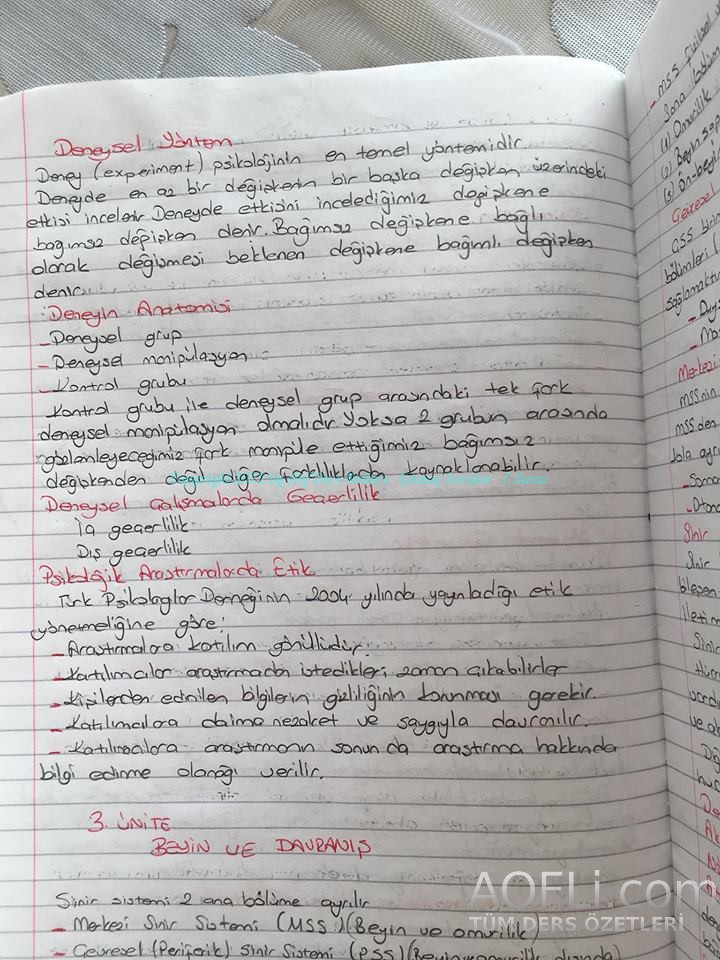 Deneysel Yöntem
Deney (experiment) psikolojinin en temel yöntemidir.
Deneyde en az bir değişkenin bir başka değişken üzerindeki
etkisi incelenir. Deneyde etkisini incelediğimiz değişkene
bağımsız değişken denir. Bağımsız değişkene bağlı
olarak değişmesi beklenen değişkene bağımlı değişken
denir.
Deneyin Anatomisi
- Deneysel grup
- Deneysel manipülasyon
- Kontrol grubu
Kontrol grubu ile deneysel grup arasındaki tek fark
deneysel manipülasyon olmalıdır. Yoksa 2 grubun arasında
gözlemleyeceğimiz fark manipüle ettiğimiz bağımsız
değişkenden değil diğer farklılıklardan kaynaklanabilir.
Deneysel Çalışmalarda Geçerlilik
İç geçerlilik
Dış geçerlilik
Psikolojik Araştırmalarda Etik
Türk Psikologlar Derneğinin 2004 yılında yayınladığı etik
yönetmeliğine göre:
- Araştırmalara katılım gönüllüdür.
- Katılımcılar araştırmadan istedikleri zaman çıkabilirler
- Kişilerden edinilen bilgilerin gizliliğinin korunması gerekir.
- Katılımcılara daima nezaket ve saygıyla davranılır.
- Katılımcılara araştırmanın sonunda araştırma hakkında
bilgi edinme olanağı verilir.
3. ÜNİTE
BEYİN VE DAVRANIŞ
Sinir sistemi 2 ana bölüme ayrılır
- Merkezi Sinir Sistemi (MSS) (Beyin ve omurilik)
- Çevresel (Periferik) Sinir Sistemi (PSS) (Beyin omurilik dışında)
- MSS
(1) Omurilik
(2) Beyin
(3) Ön-beyin
Çevresel
bölümleri
- Duy
Merkezi
MSS nin
MSS den
- Soma
- Oton
Sinir
Sinir
bileşen
iletim
Sinir
AOFLi.com
TÜM DERS ÖZETLERİ